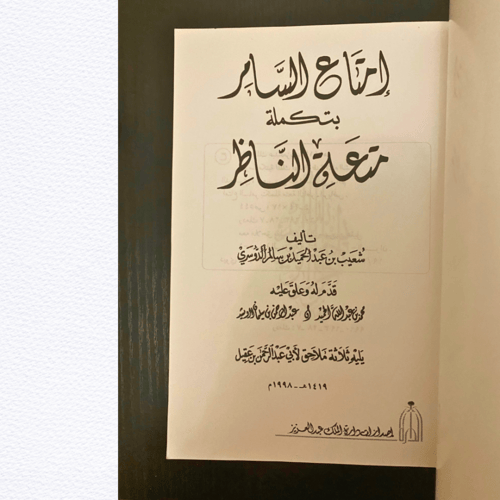 إمتاع السَّامر
بتكملة
متعة النَّاظر
تأليف
شعيب بن عبد الحميد بن سالم الدوسري
قدّم له وعلّق عليه
محمد بن عبد الله الحميد عبد الرحمن بن سليمان الرويشد
يليه ثلاثة ملاحق لأبي عبد الرحمن بن عقيل
١٤١٩هـ - ١٩٩٨م
إصدارات دارة الملك عبد العزيز